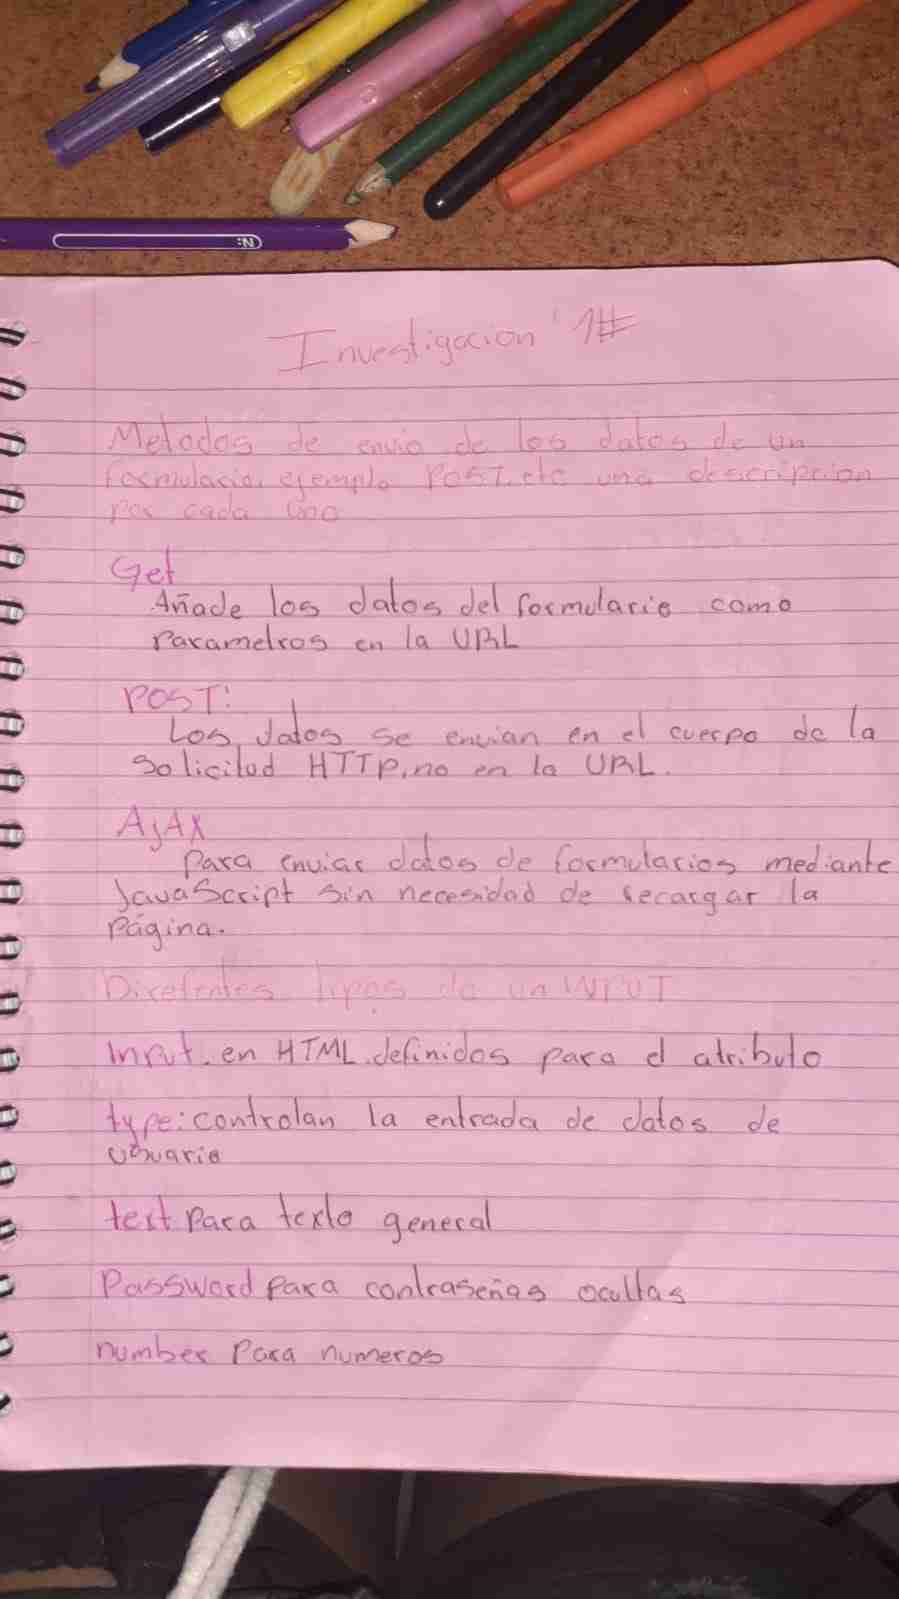 Investigacion 1#
Metodos de envio de los datos de un
formulario, ejemplo POST, etc una descripcion
por cada uno
Get
Añade los datos del formulario como
parametros en la URL
POST:
Los datos se envian en el cuerpo de la
solicitud HTTP, no en la URL.
AJAX
Para enviar datos de formularios mediante
JavaScript sin necesidad de recargar la
Página.
Direfentes tipos de un INPUT
Input. en HTML. definidos para el atributo
type: controlan la entrada de datos de
usuario
text para texto general
Password para contraseñas ocultas
number para numeros
N: